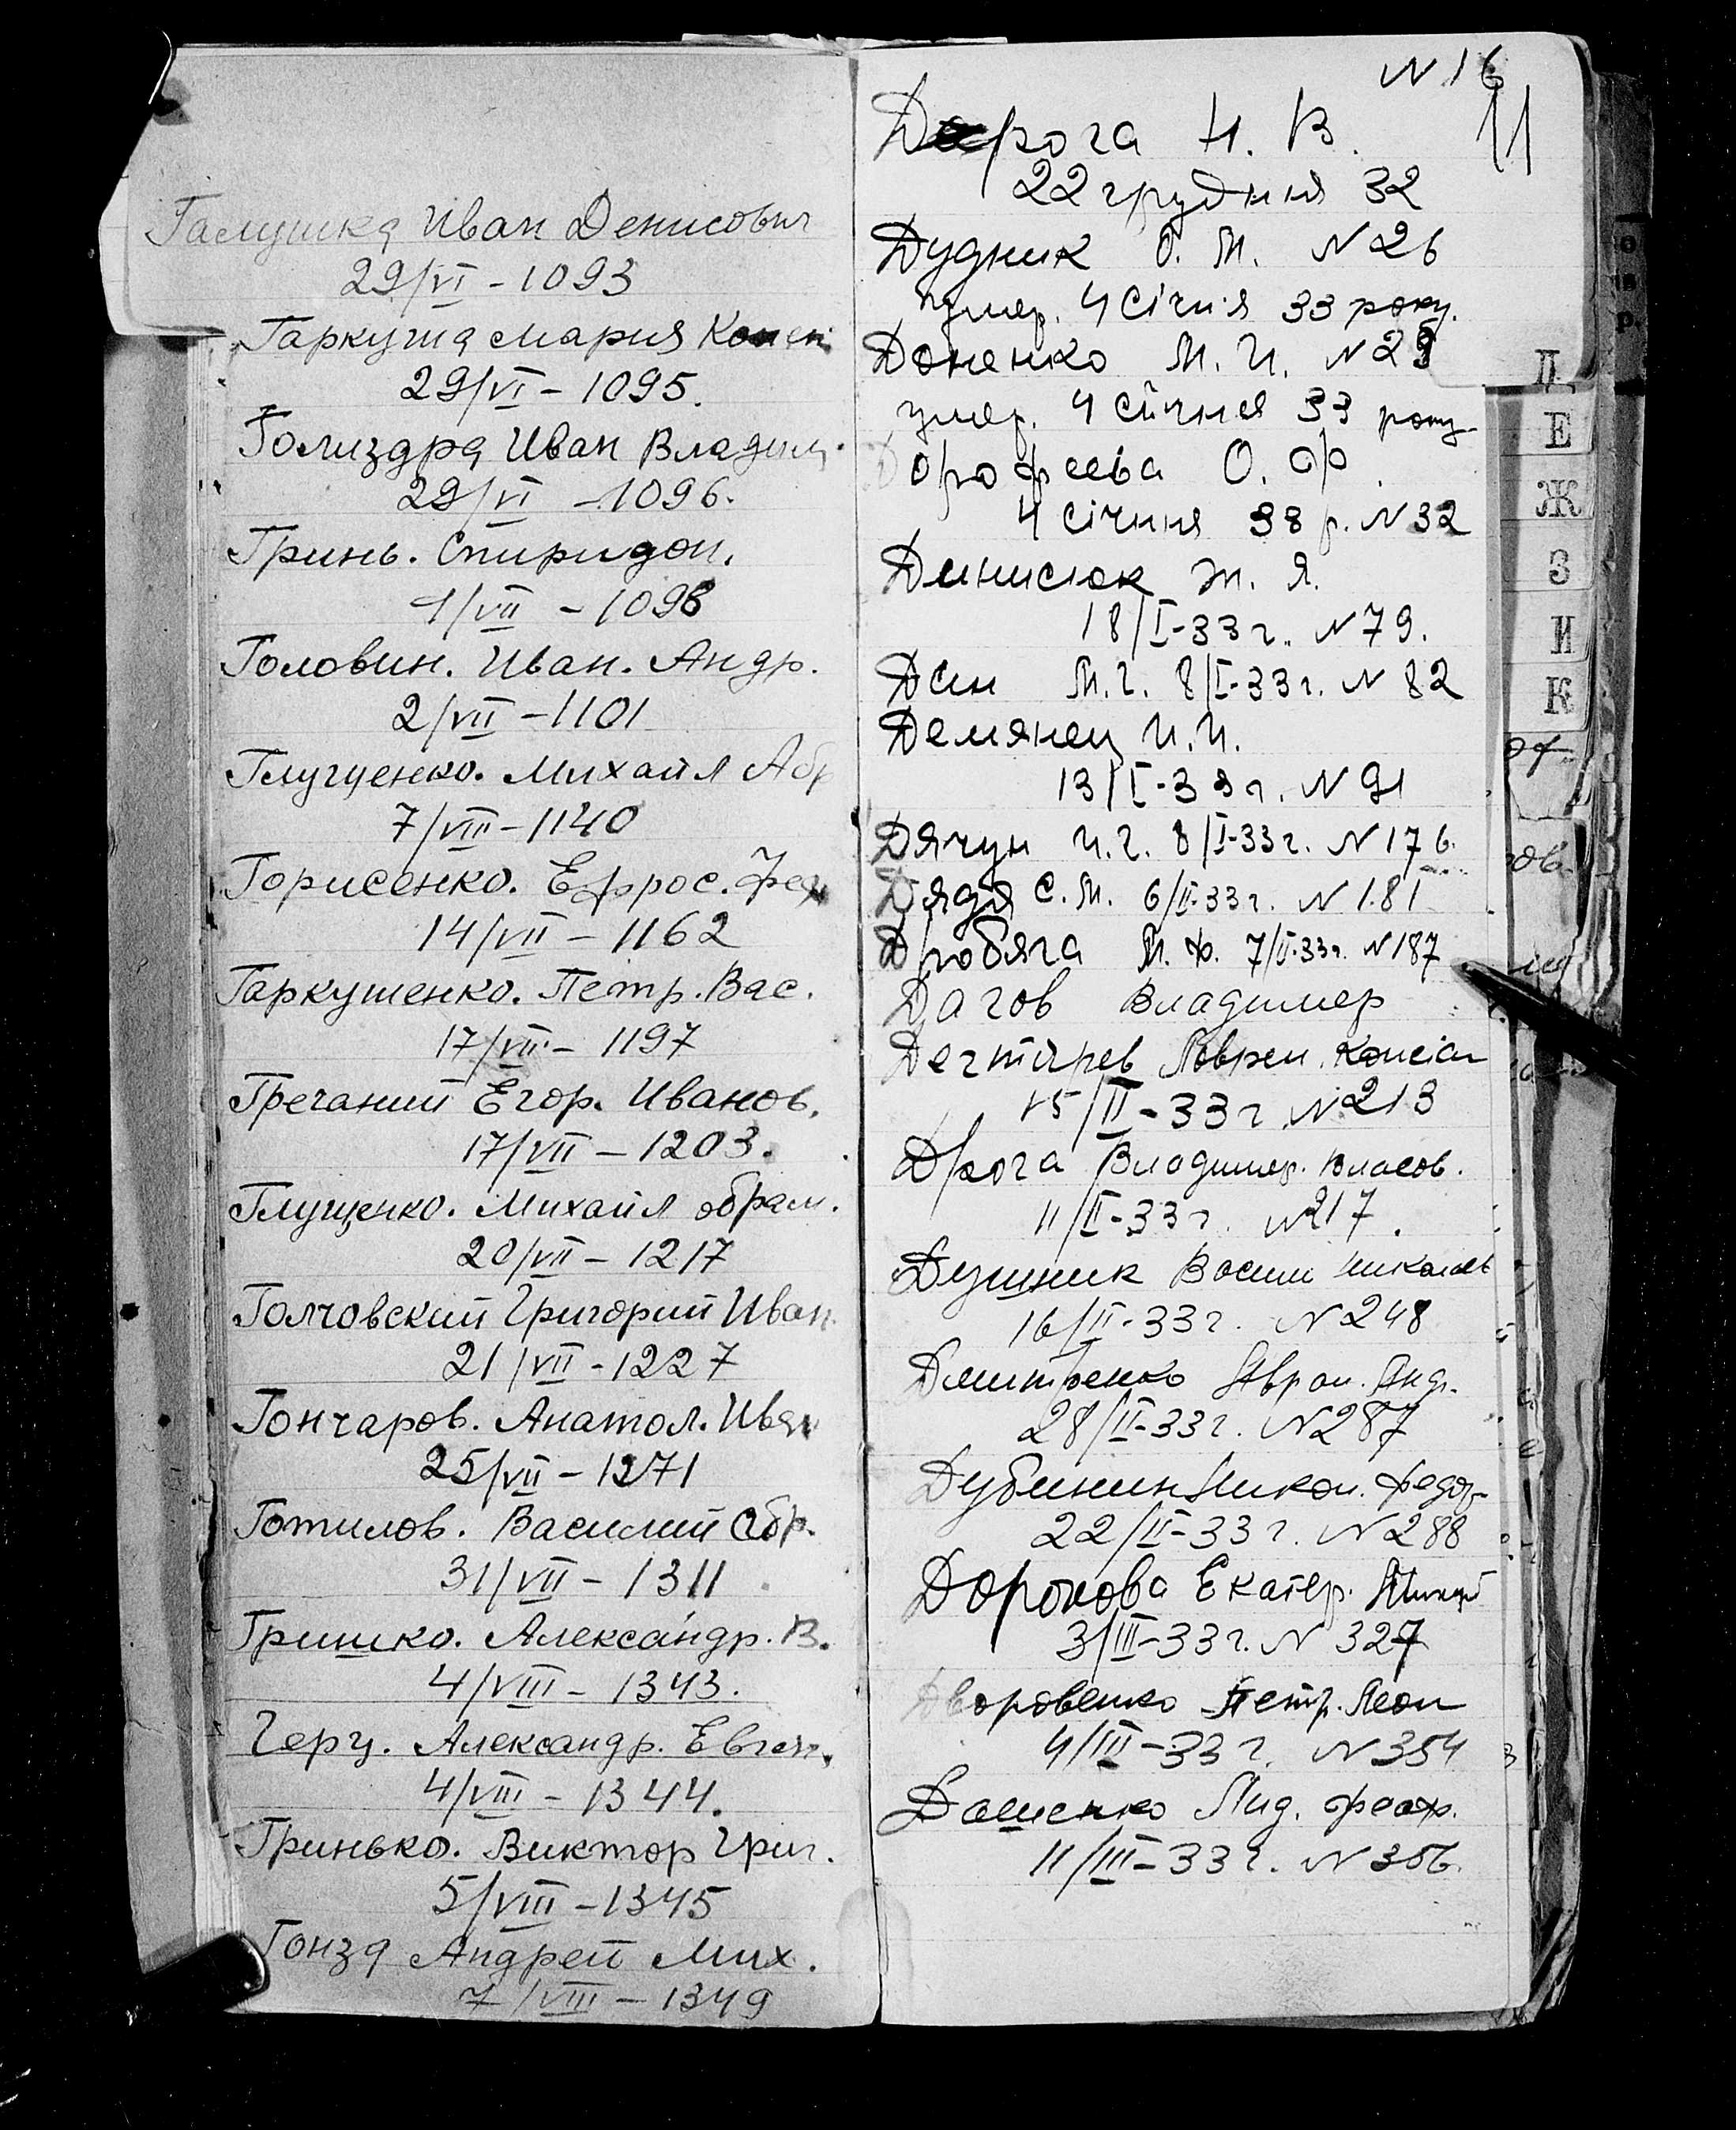 Галушка Иван Денисович
29/VI - 1093
Гаркуша Мария
29/VI - 1095.
Голиздра Иван Владим.
29/VI - 1096.
Гринь. Спиридон.
1/VII - 1098
Головин. Иван. Андр.
2/VII - 1101
Глущенко. Михаил Абр
7/VIII - 1140
Горисенко. Ефрос.
14/VII - 1162
Гаркушенко. Петр. Вас.
17/VII - 1197
Гречаний Егор. Иванов.
17/VII - 1203.
Глущенко. Михаил обрам.
20/VII - 1217
Голчовский Григорий Иван.
21/VII - 1227
Гончаров. Анатол. Иван
25/VII - 1271
Готилов. Василий
31/VII - 1311
Гришко. Александр. В.
4/VIII - 1343.
Герц. Александр. Евген.
4/VIII - 1344.
Гринько. Виктор Григ.
5/VIII - 1345
Гонза Андрей Мих.
7/VIII - 1349
N 16
11
Дорога Н. В.
22 грудння 32
Дудник О. М. N 26
умер. 4 Січня 33 року.
Доненко М. И. N 29
умер. 4 січня 33 року
Дорофеева О. Ф.
4 січння 33 р. N 32
Динисюк Ж. Я.
18/I-33 г. N 79.
Дан М. Г. 8/I-33 г. N 82
Демянец И. И.
13/I-33 г. N 91
Дячун И. Г. 8/I-33 г. N 176.
Дядя С. М. 6/II-33 г. N 181
Дробяга М. Ф. 7/II-33 г. N 187
Дагов Владимер
Дегтярев Лаврен. Констан
15/II-33 г. N 213
Дрога Владимер. Власов.
11/II-33 г. N 217.
Душник Васили Николаев
16/II-33 г. N 248
Дмитренко Аврам. Анд.
28/II-33 г. N 287
Дубинин Никол. Федор.
22/II-33 г. N 288
Доронова Екатер.
3/III-33 г. N 327
Дворовенко Петр. Леон
4/III-33 г. N 354
Дашенко Лид.
11/III-33 г. N 356.
Д
Е
Ж
З
И
К